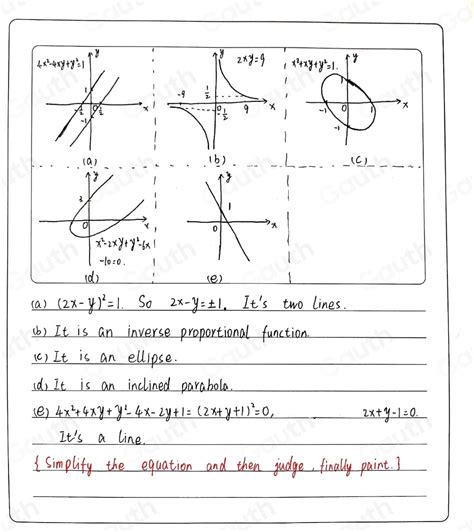 4x²-4xy+y²=1
y
1
-½
0
½
x
-1
(a)
y
2xy=9
-9
½
0
½
9
x
(b)
x²+xy+y²=1.
y
1
-1
0
1
x
-1
(c)
y
3
0
x
x²-2xy+y²-6x
-10=0.
(d)
y
1
0
x
(e)
(a) (2x-y)²=1. So 2x-y=±1. It's two lines.
(b) It is an inverse proportional function.
(c) It is an ellipse.
(d) It is an inclined parabola.
(e) 4x²+4xy+y²-4x-2y+1=(2x+y+1)²=0, 2x+y-1=0.
It's a line.
{Simplify the equation and then judge, finally paint.}